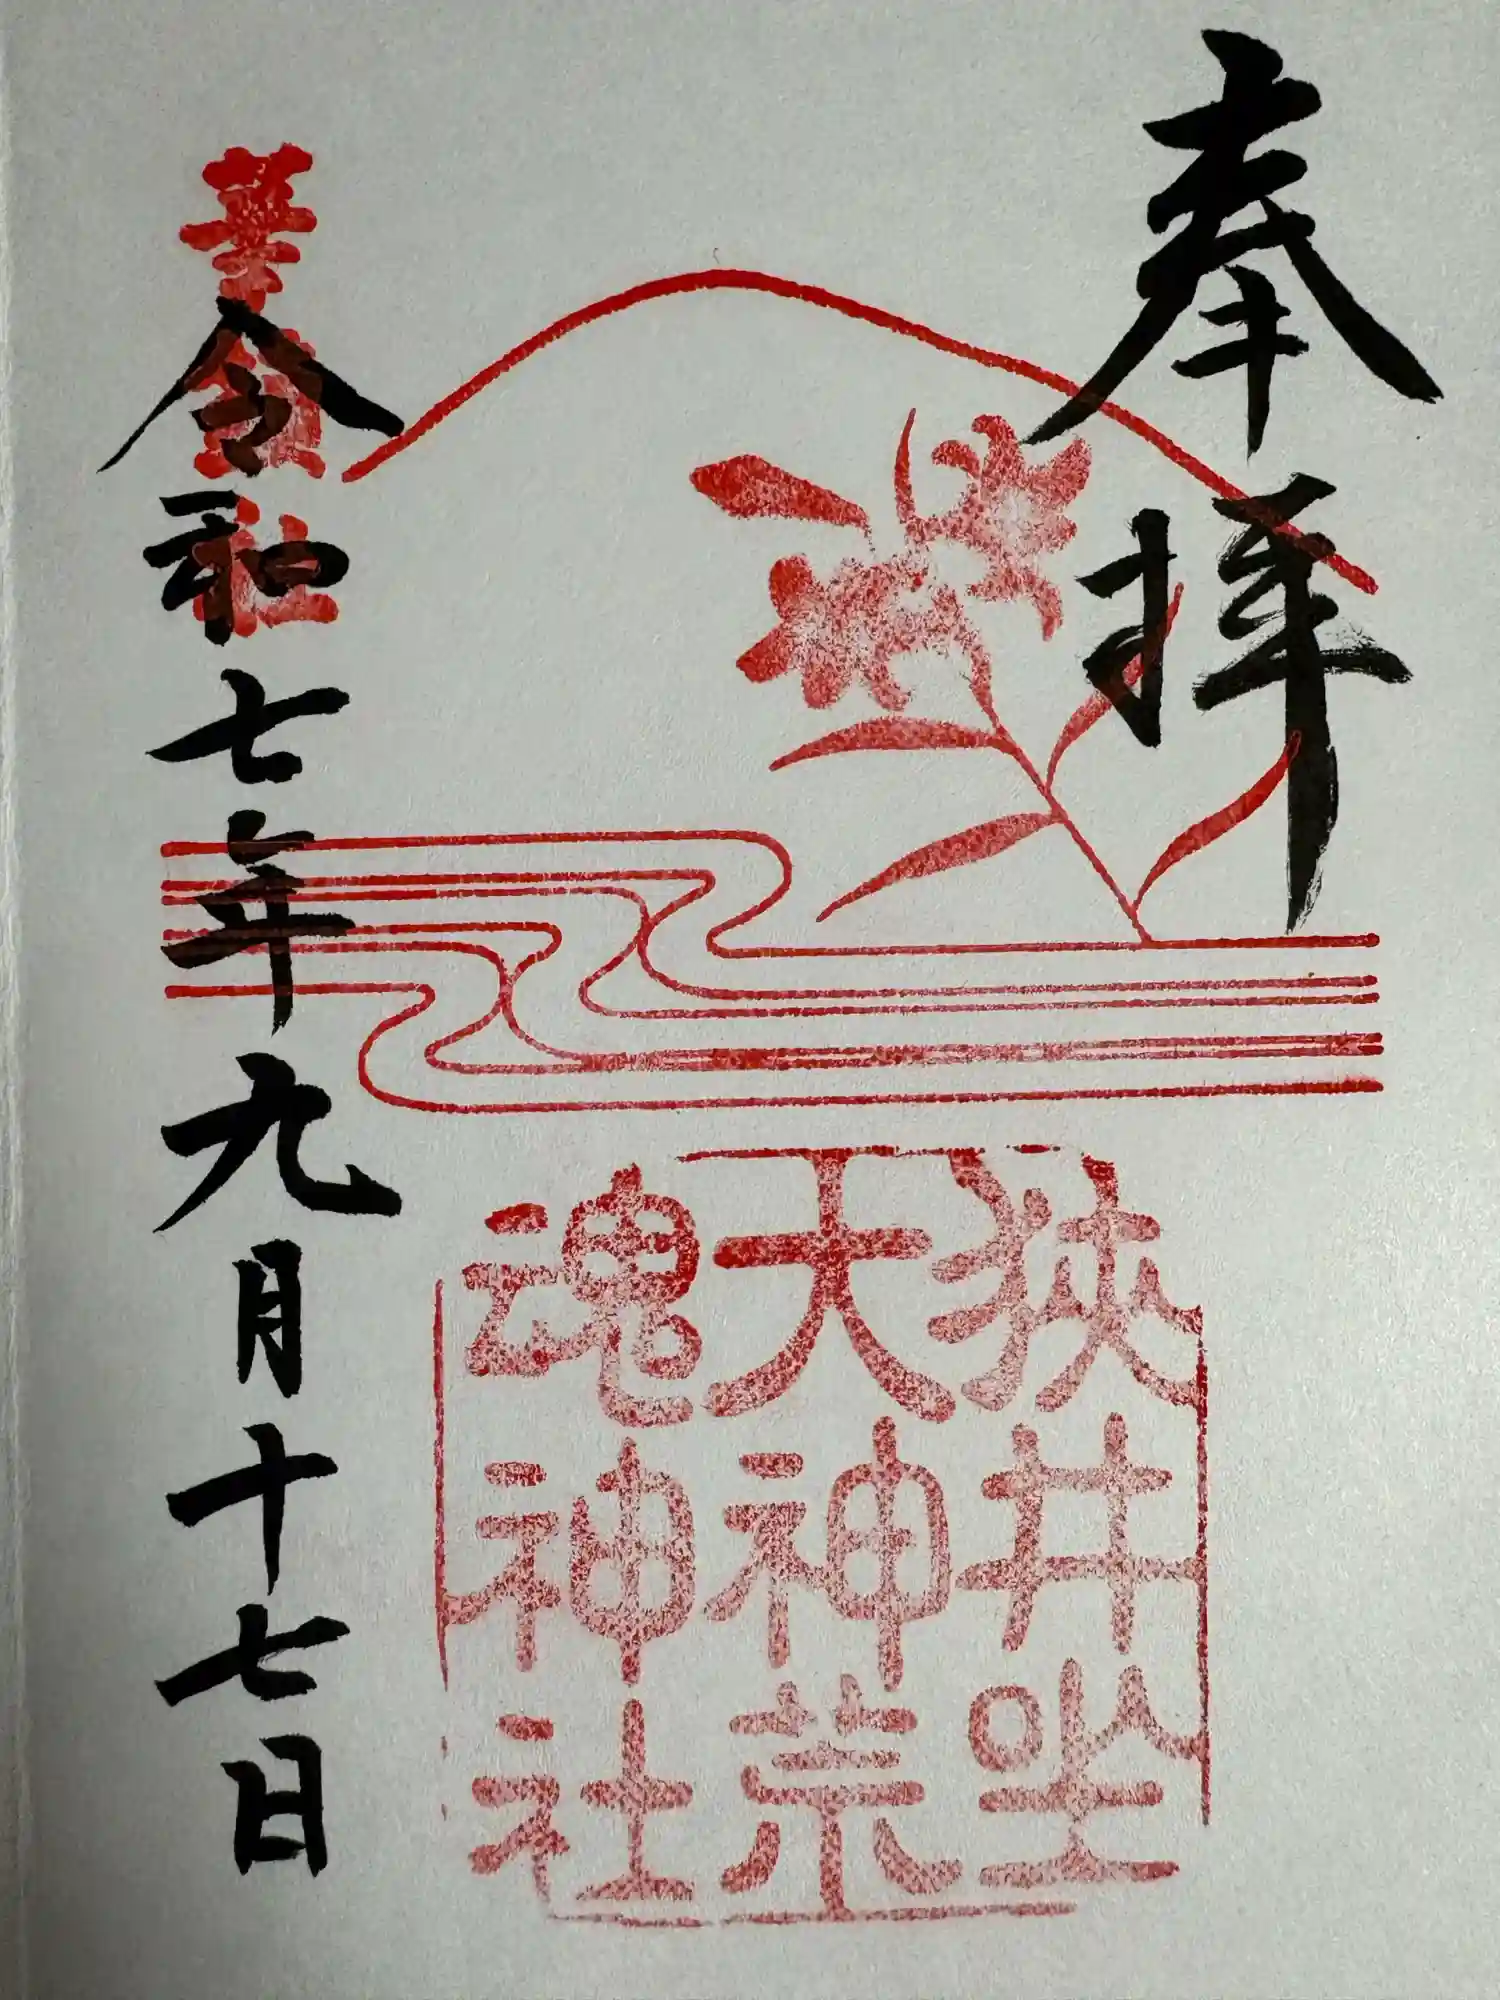 奉拝
狭井坐
大神荒
魂神社
華鎮社
令和七年九月十七日